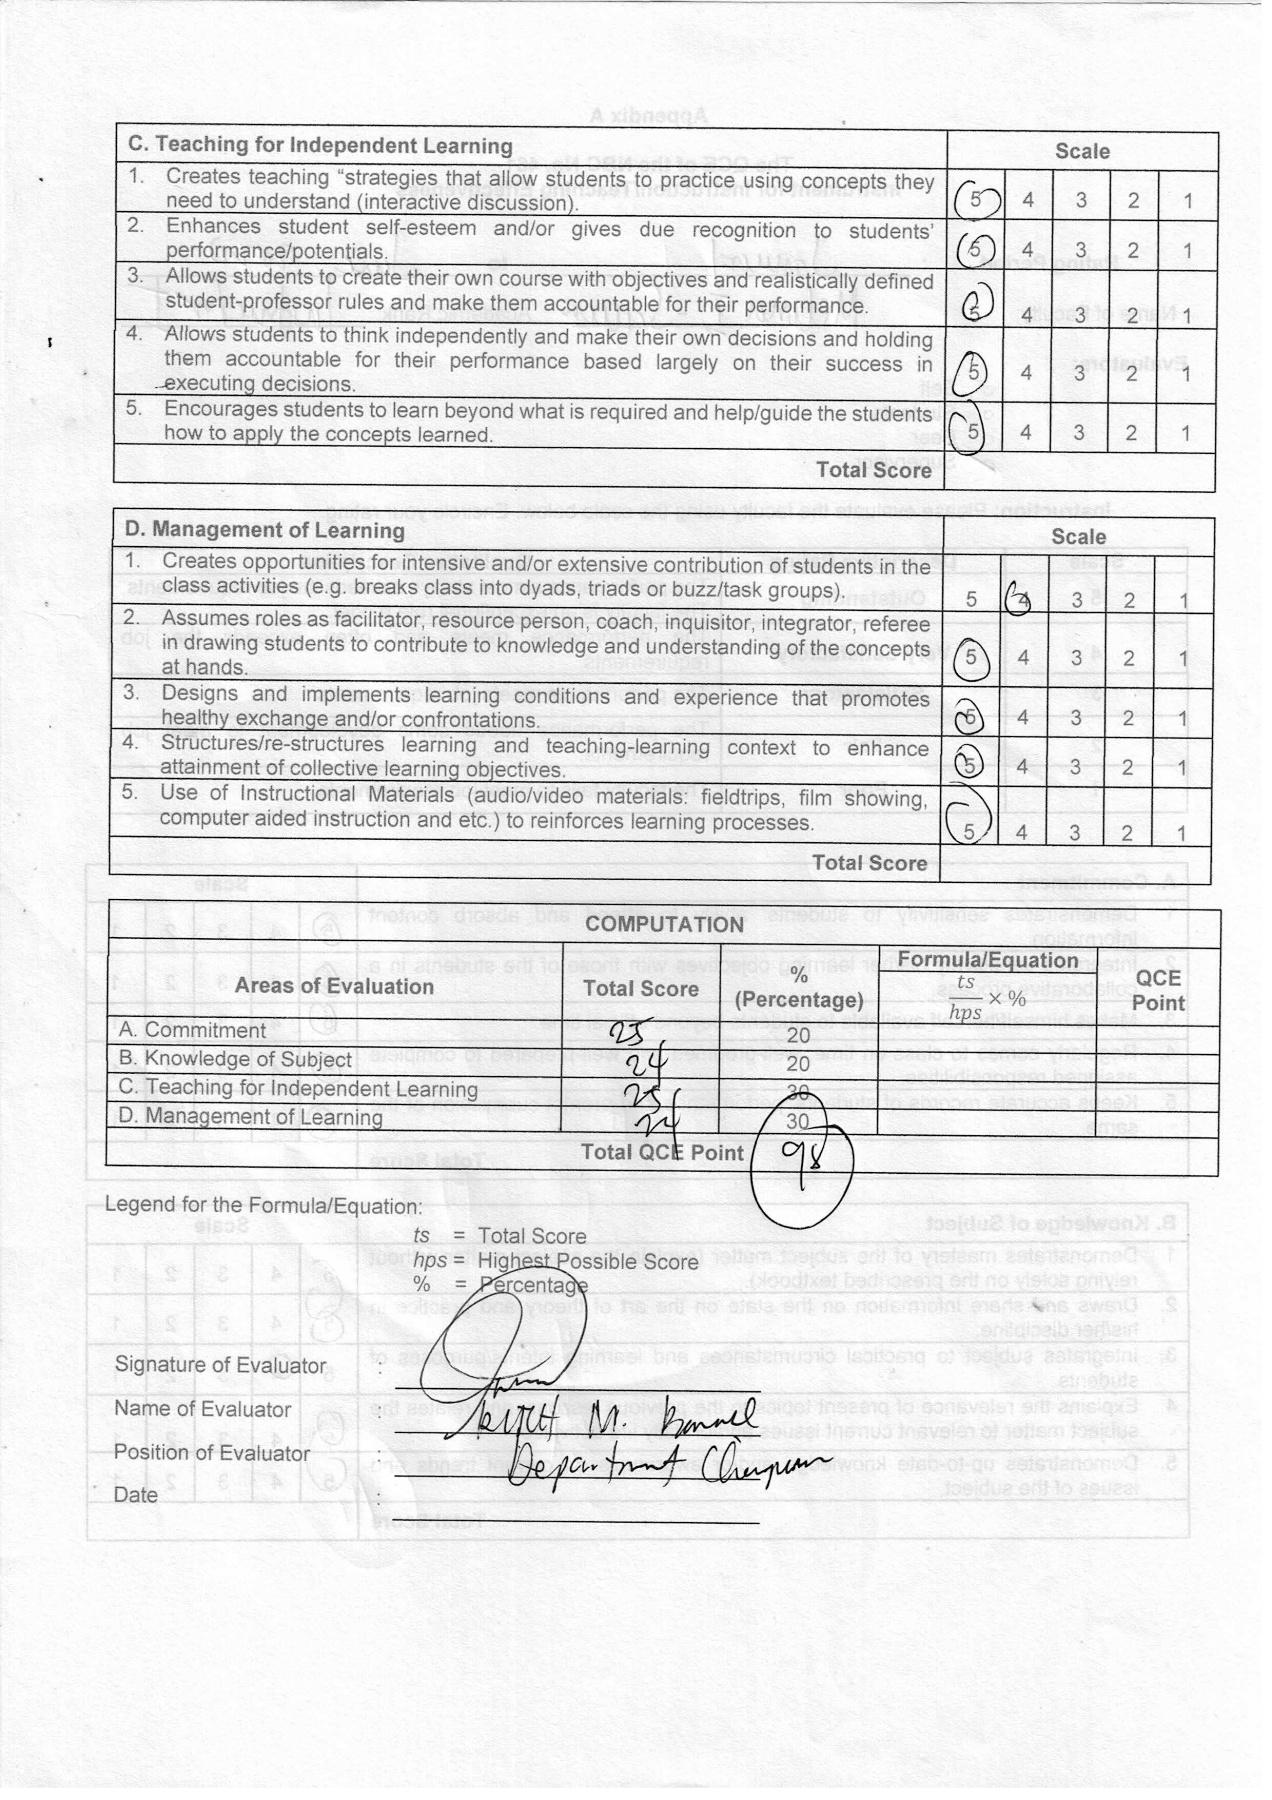 C. Teaching for Independent Learning Scale
1. Creates teaching “strategies that allow students to practice using concepts they
need to understand (interactive discussion). 5 4 3 2 1
2. Enhances student self-esteem and/or gives due recognition to students'
performance/potentials. 5 4 3 2 1
3. Allows students to create their own course with objectives and realistically defined
student-professor rules and make them accountable for their performance. 5 4 3 2 1
4. Allows students to think independently and make their own decisions and holding
them accountable for their performance based largely on their success in
executing decisions. 5 4 3 2 1
5. Encourages students to learn beyond what is required and help/guide the students
how to apply the concepts learned. 5 4 3 2 1
Total Score
D. Management of Learning Scale
1. Creates opportunities for intensive and/or extensive contribution of students in the
class activities (e.g. breaks class into dyads, triads or buzz/task groups). 5 4 3 2 1
2. Assumes roles as facilitator, resource person, coach, inquisitor, integrator, referee
in drawing students to contribute to knowledge and understanding of the concepts
at hands. 5 4 3 2 1
3. Designs and implements learning conditions and experience that promotes
healthy exchange and/or confrontations. 5 4 3 2 1
4. Structures/re-structures learning and teaching-learning context to enhance
attainment of collective learning objectives. 5 4 3 2 1
5. Use of Instructional Materials (audio/video materials: fieldtrips, film showing,
computer aided instruction and etc.) to reinforces learning processes. 5 4 3 2 1
Total Score
COMPUTATION
Areas of Evaluation Total Score % (Percentage) Formula/Equation ts/hps × % QCE Point
A. Commitment 25 20
B. Knowledge of Subject 24 20
C. Teaching for Independent Learning 25 30
D. Management of Learning 24 30
Total QCE Point 98
Legend for the Formula/Equation:
ts = Total Score
hps = Highest Possible Score
% = Percentage
Signature of Evaluator :
Name of Evaluator : M.
Position of Evaluator : Department
Date :